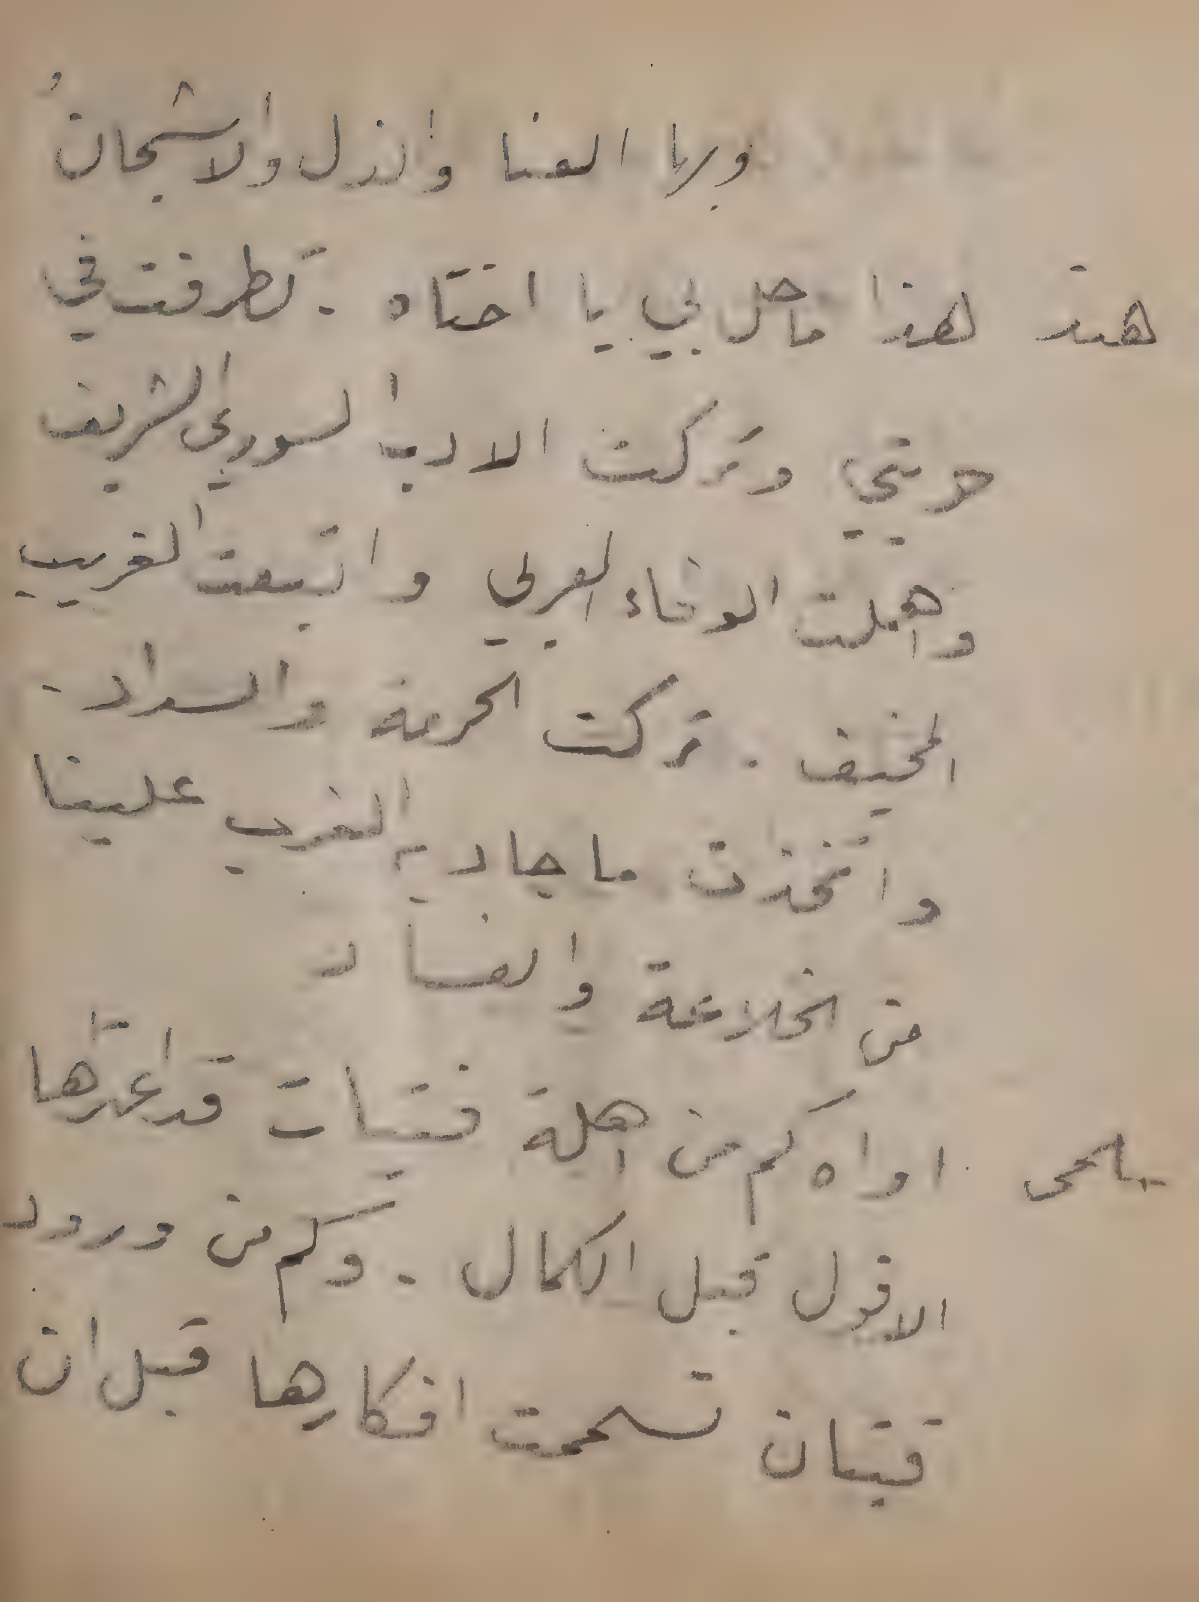 وبها العنا والذل والاشجانُ
هند هذا ما حل بي يا اختاه . تطرفت في
حريتي وتركت الادب السوري الشريف
واهملت الوفاء العربي واتبعت الغريب
المخيف . تركت الحرمة والسداد .
واتخذت ما جاد به الغرب علينا
من الخلاعة والفساد
سلمى اواه كم من اهلة فتيات قد اعتراها
الافول قبل الكمال . وكم من ورود
فتيان تسممت افكارها قبل ان